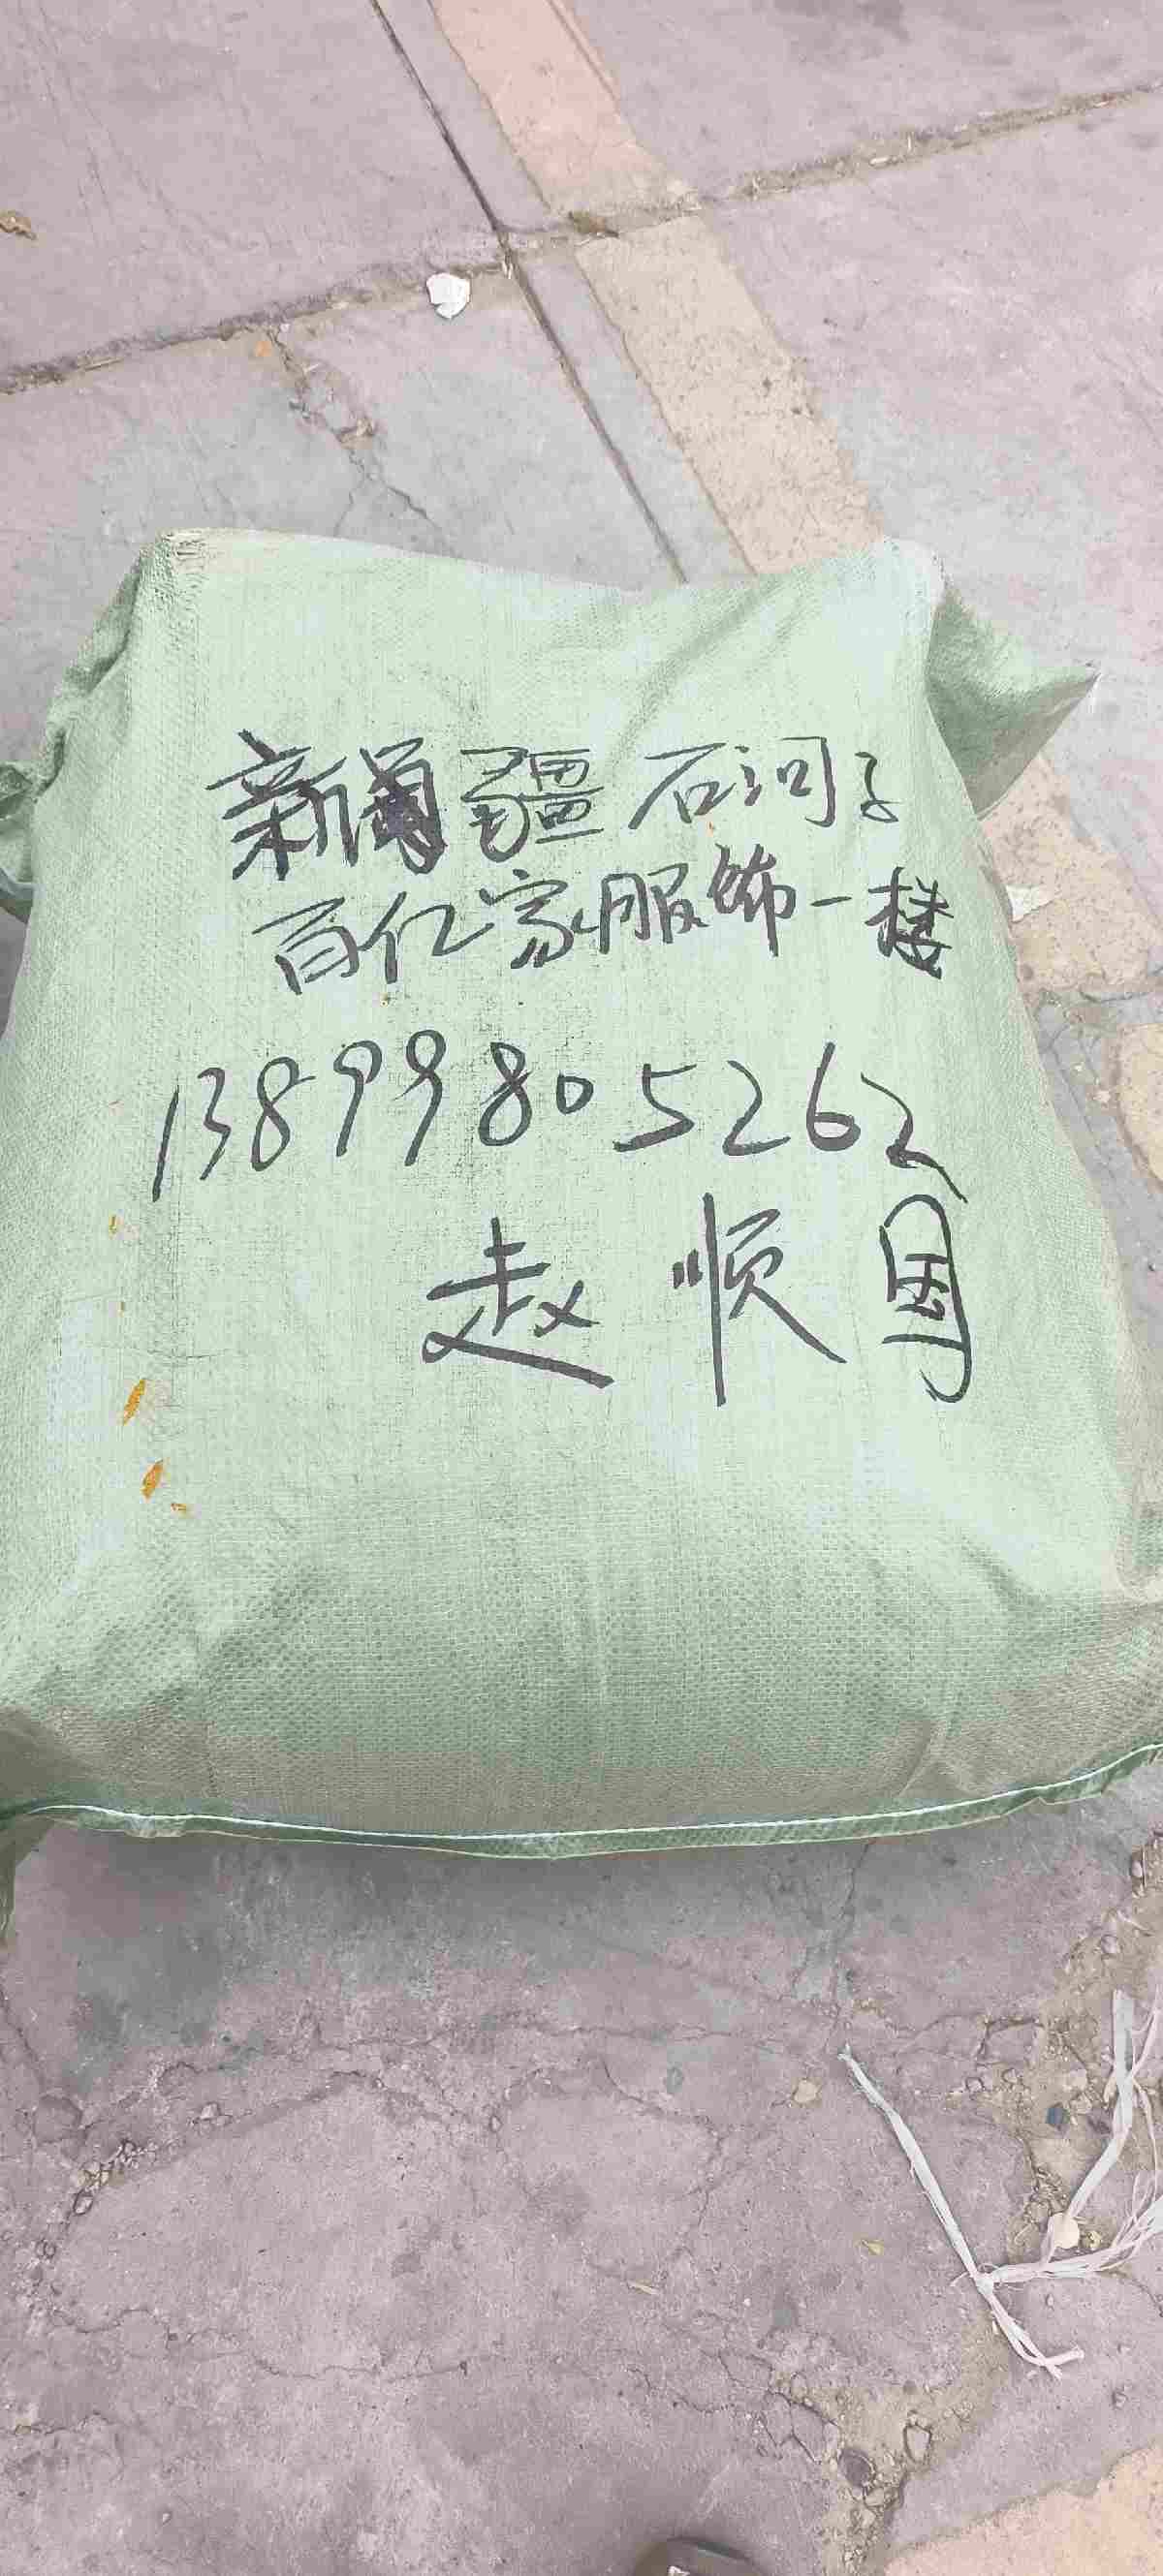 新疆石河子
百亿家服饰一楼
13899805262
赵顺国